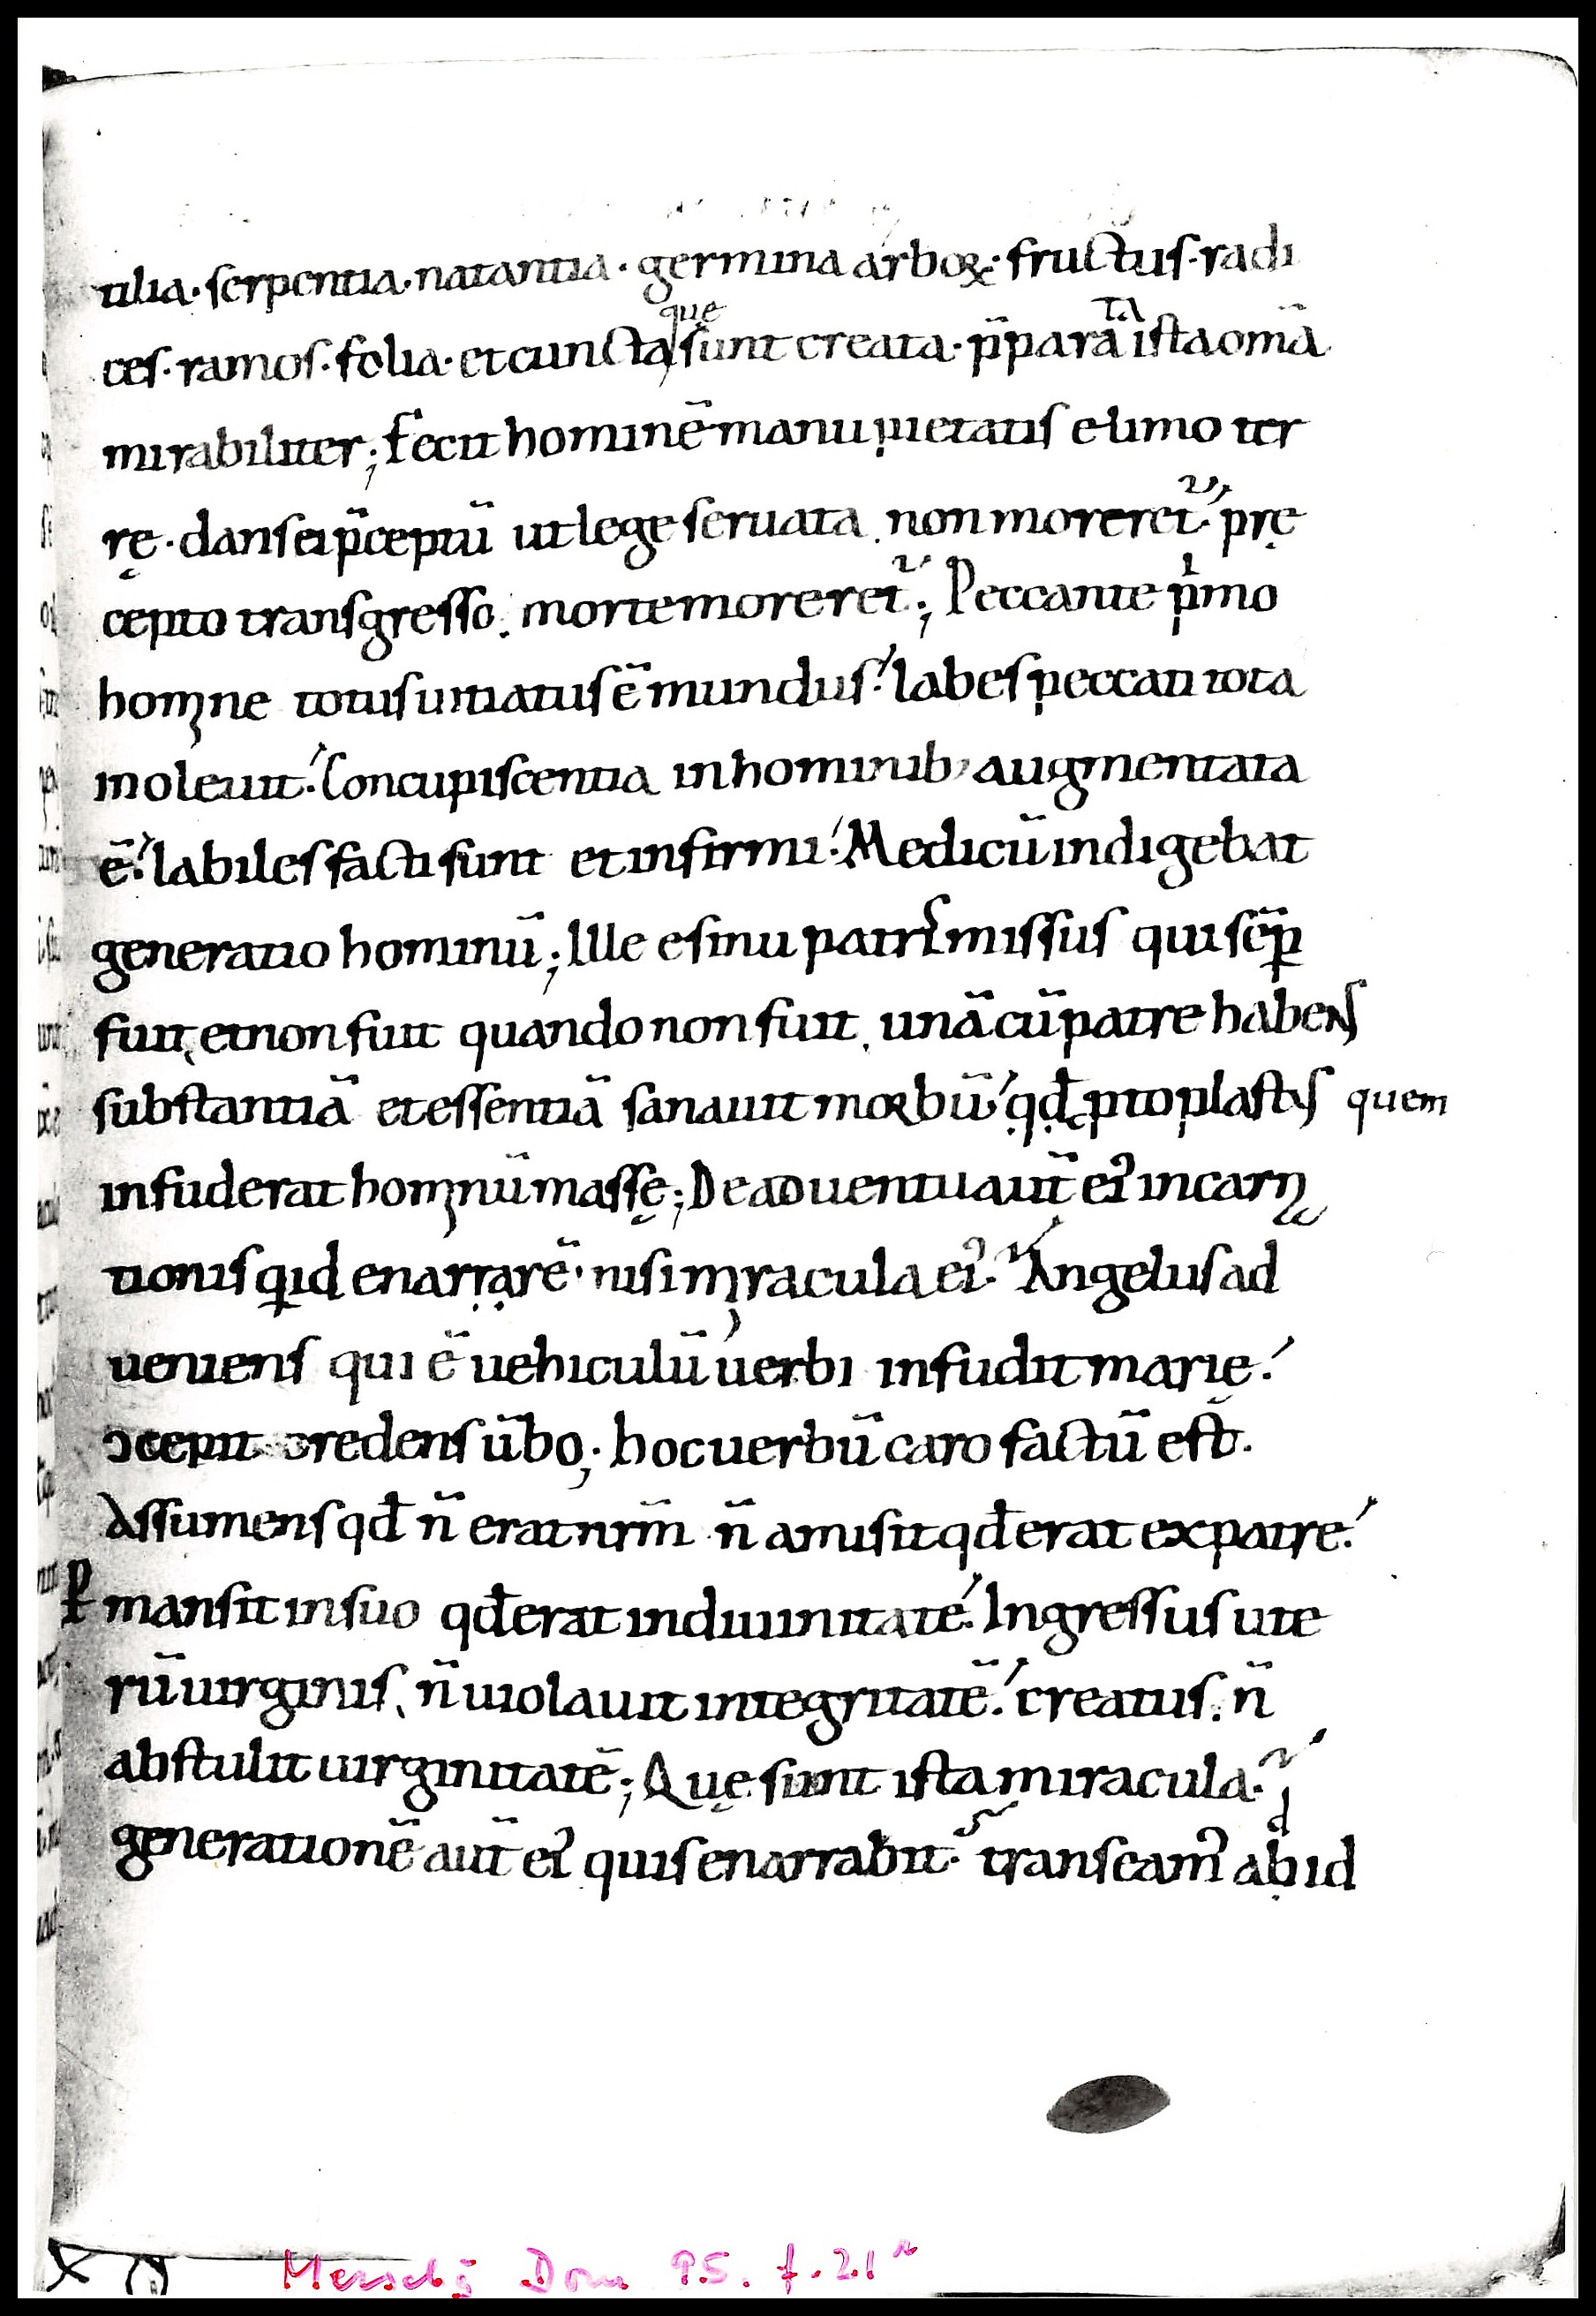 tilia · serpentia · natantia · germina arboꝝ · fructus · radi
ces · ramos · folia · et cuncta que sunt creata · p̄para ta ista om̄a
mirabiliter; fecit hominē manu pietatis e limo ter
rę · dans ei p̄ceptū ut lege seruata non moreret᷑ prę
cepto transgresso. morte moreret᷑; Peccante pⁱmo
homine totus uitiatus ē mundus. labes peccati tota
inoleuit. Concupiscentia in hominib; augmentata
ē. labiles facti sunt et infirmi. Medicū indigebat
generatio hominū; Ille e sinu patris missus qui sēp̄
fuit, et non fuit quando non fuit. unā cū patre habens
substantiā et essentiā sanauit morbū qđ ptoplastus quem
infuderat hominū massę; De aduentu aut̄ eiꝰ incarna
tionis qⁱd enarrarē · nisi miracula eiꝰ. Angelus ad
ueniens qui ē uehiculū uerbi infudit marię.
ↄcepit credens ūbo; hoc uerbū caro factū est.
Assumens qđ n̄ erat nr̄m n̄ amisit qđ erat ex patre.
P mansit in suo qđ erat in diuinitate. Ingressus ute
rū uirginis, n̄ uiolauit integritatē. creatus. n̄
abstulit uirginitatē; Quę sunt ista miracula.
generationē aut̄ eiꝰ quis enarrabit. transeamꝰ ab ad id
Mersebg Dom 95. f. 21r